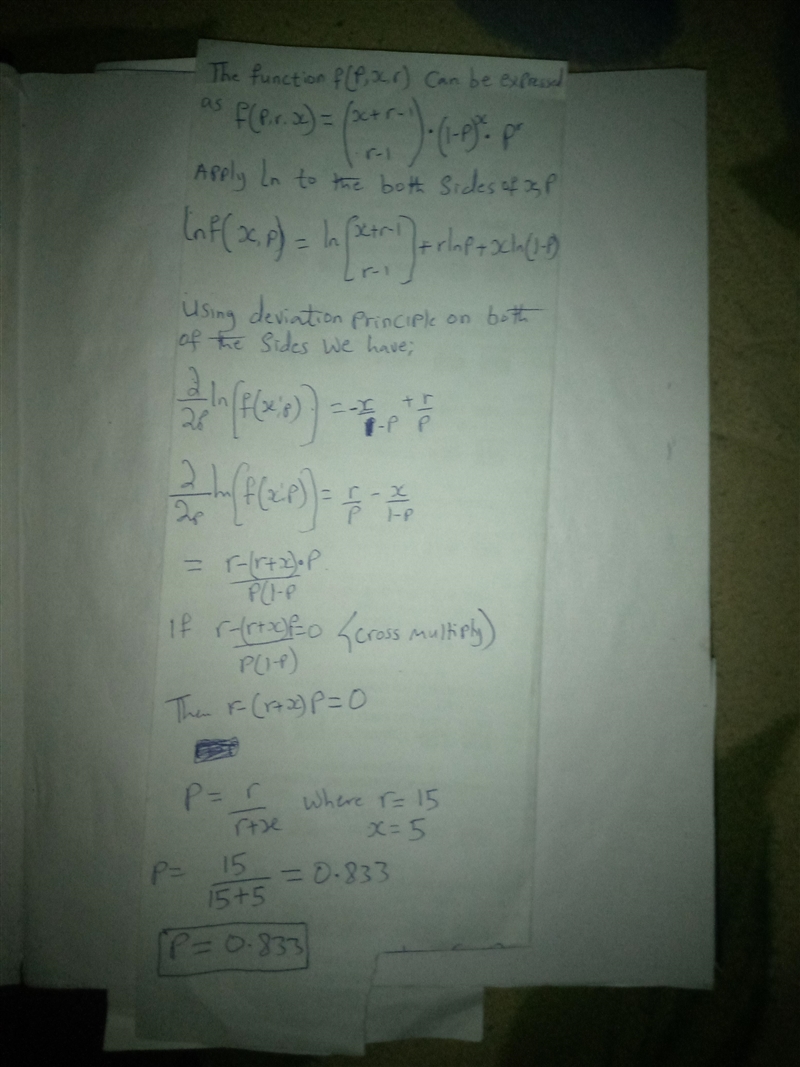 The function f(P,x,r) Can be expressed
as f(P,r,x) = (x+r-1 r-1) · (1-P)^x · P^r
Apply ln to the both Sides of x,P
lnf(x,P) = ln[x+r-1 r-1] + rlnP + xln(1-P)
Using deviation Principle on both
of the Sides We have;
∂/∂P ln[f(x;P)] = -x/1-P + r/P
∂/∂P ln[f(x;P)] = r/P - x/1-P
= r-(r+x)·P/P(1-P
If r-(r+x)P/P(1-P) = 0 (cross multiply)
Then r-(r+x)P = 0
P = r/r+x where r = 15
x = 5
P = 15/15+5 = 0.833
P = 0.833